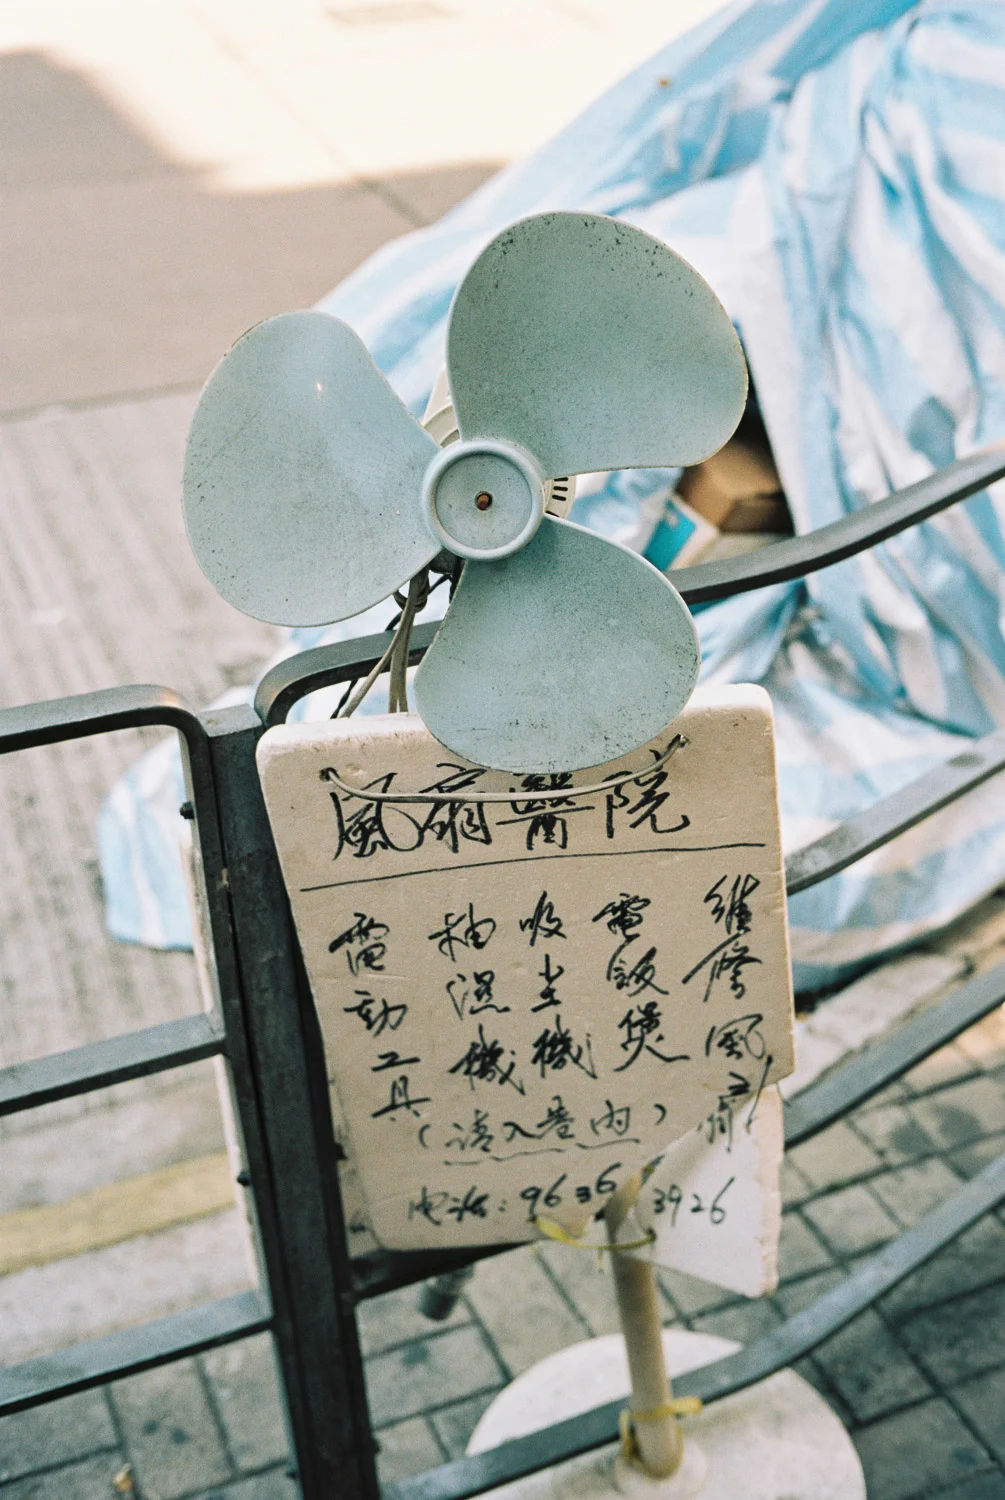 風扇醫院
維修風扇
電飯煲
吸尘機
抽濕機
電動工具
(请入巷内)
电话: 9636 3926